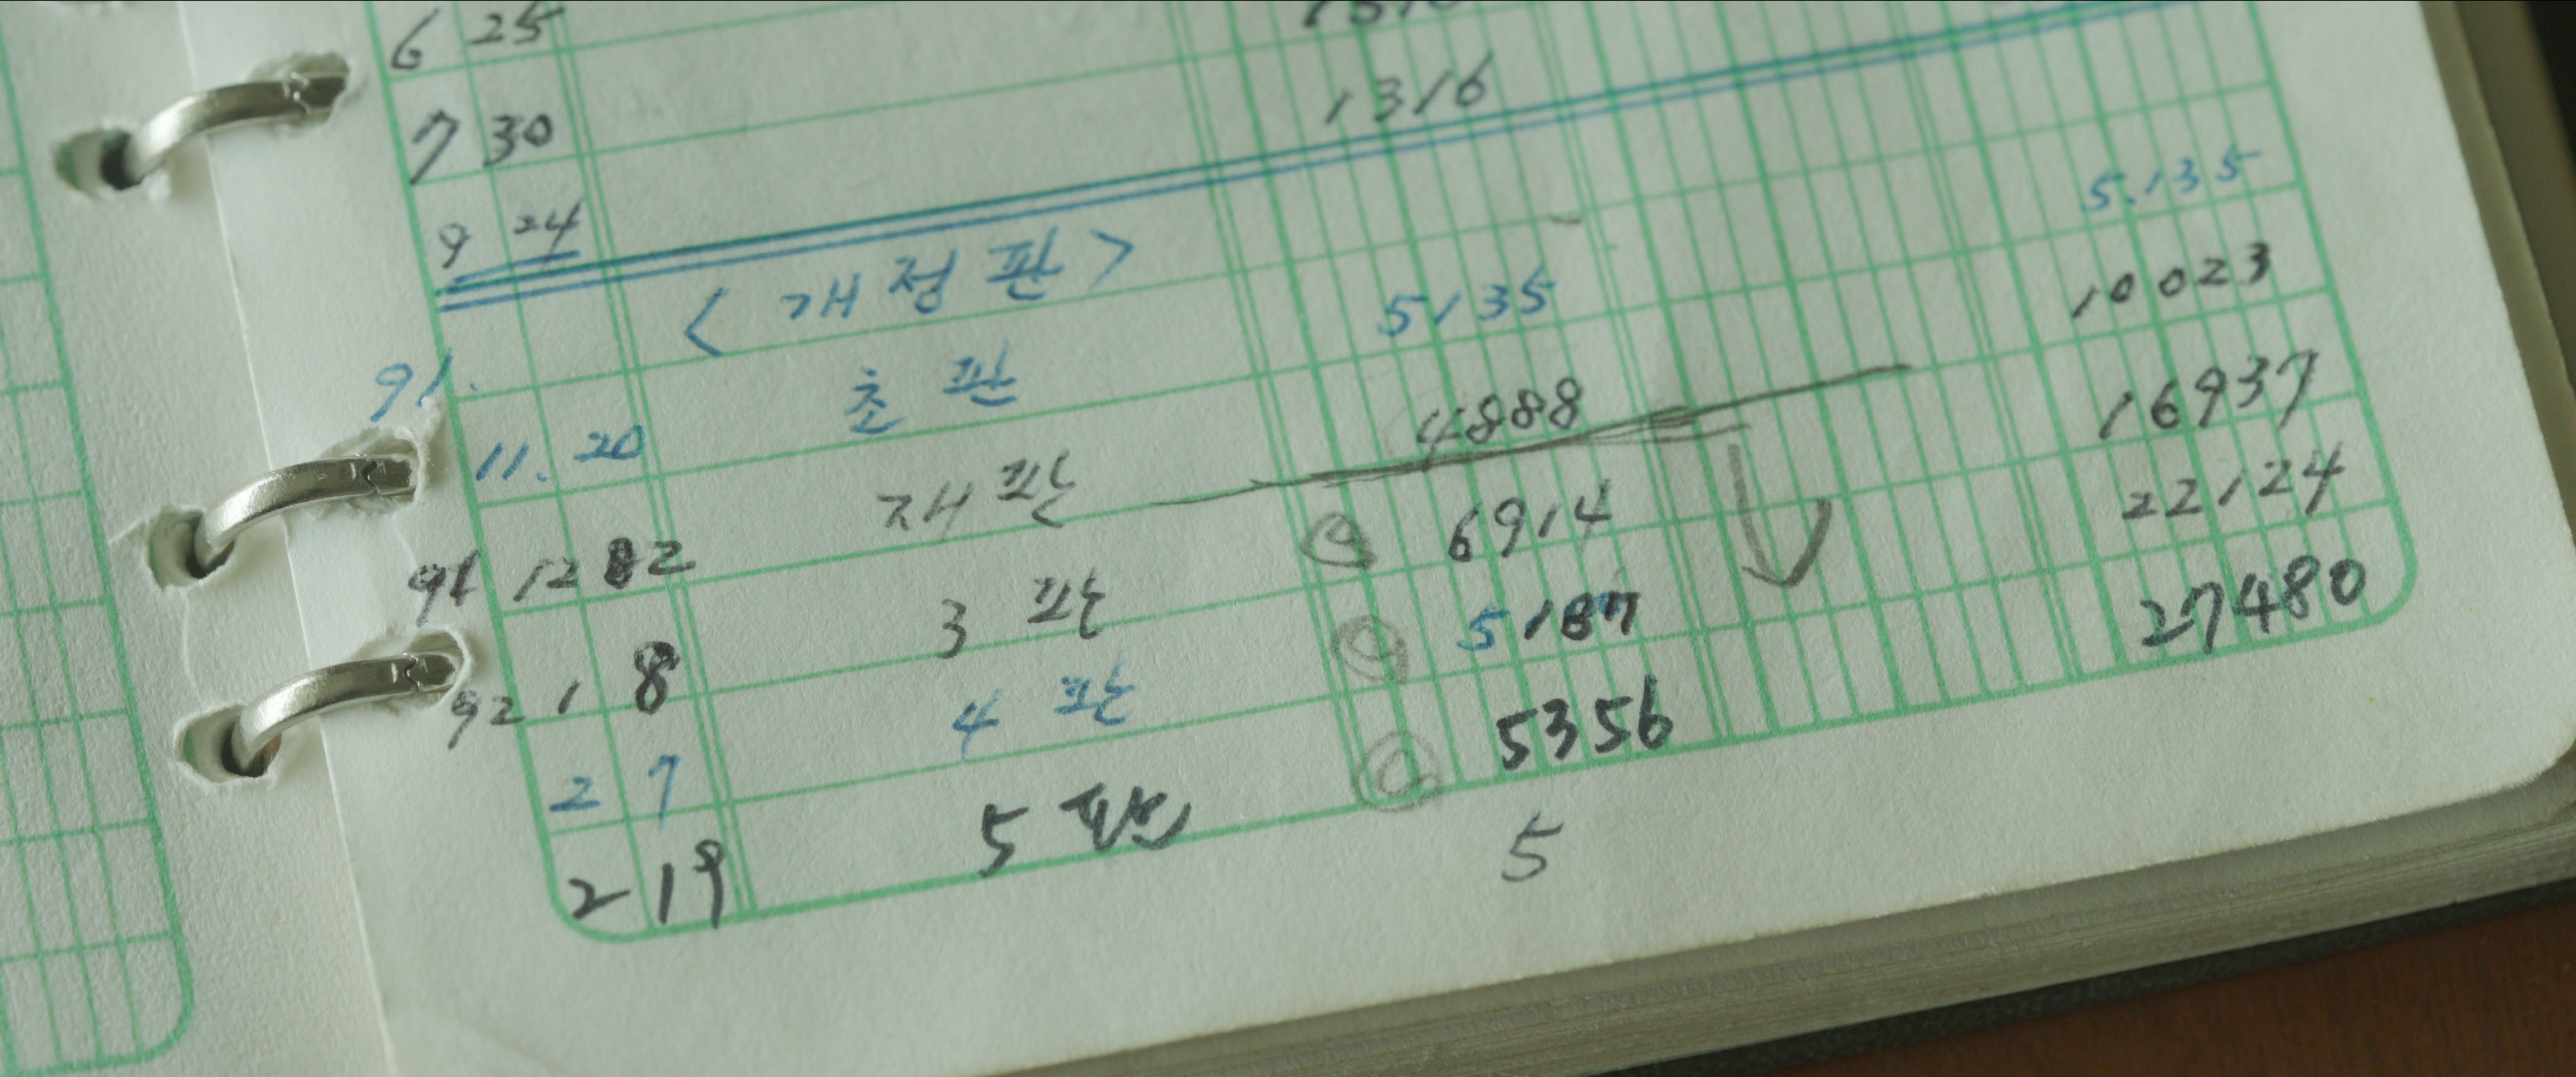 6 25
7 30 1316
9 24
< 개정판 >
91. 11. 20 초판 5135 5.135
91 12 재판 4888 10023
92 1 8 3판 6914 16937
2 7 4판 5187 22124
2 19 5판 5356 27480
5